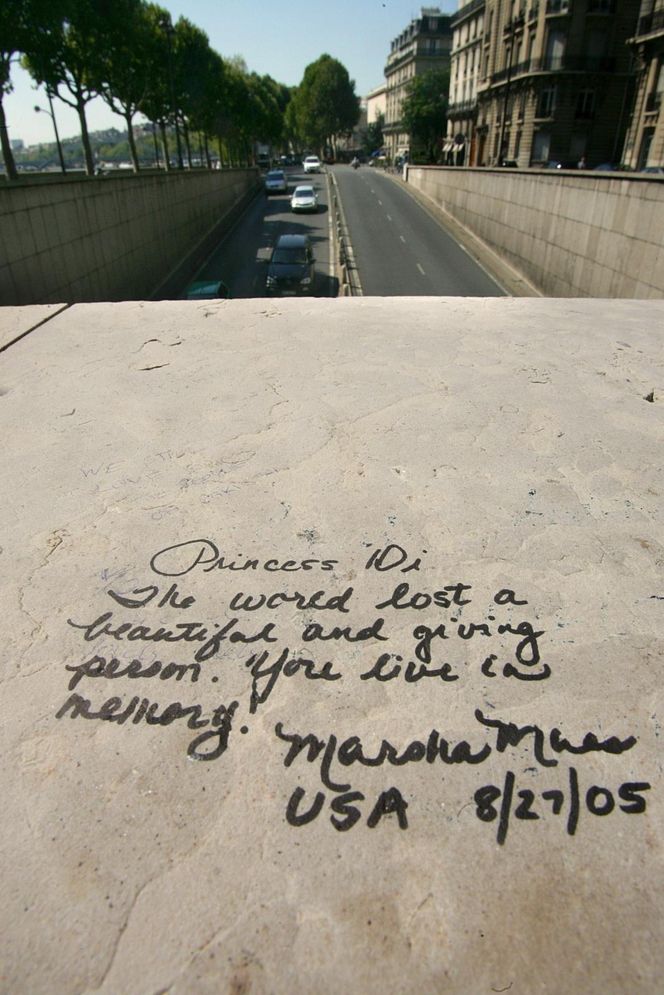 WE
Princess Di
The world lost a
beautiful and giving
person. You live in
memory!
Marsha
USA 8/27/05